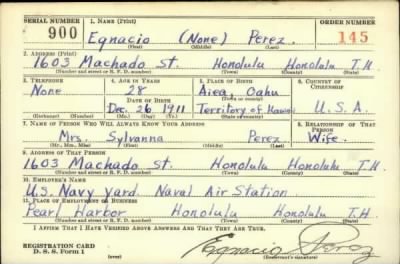 SERIAL NUMBER 1. NAME (Print) ORDER NUMBER
900 Egnacio (None) Perez. 145
(First) (Middle) (Last)
2. ADDRESS (Print)
1603 Machado St. Honolulu Honolulu T.H.
(Number and street or R. F. D. number) (Town) (County) (State)
3. TELEPHONE 4. AGE IN YEARS 5. PLACE OF BIRTH 6. COUNTRY OF CITIZENSHIP
None 28 Aiea, Oahu
DATE OF BIRTH (Town or county)
Dec. 26 1911 Territory of Hawaii U.S.A.
(Exchange) (No.) (Mo.) (Day) (Yr.) (State or country)
7. NAME OF PERSON WHO WILL ALWAYS KNOW YOUR ADDRESS 8. RELATIONSHIP OF THAT PERSON
Mrs. Sylvanna Perez Wife.
(Mr., Mrs., Miss) (First) (Middle) (Last)
9. ADDRESS OF THAT PERSON
1603 Machado St. Honolulu Honolulu T.H.
(Number and street or R. F. D. number) (Town) (County) (State)
10. EMPLOYER'S NAME
U.S. Navy Yard. Naval Air Station
11. PLACE OF EMPLOYMENT OR BUSINESS
Pearl Harbor Honolulu Honolulu T.H.
(Number and street or R. F. D. number) (Town) (County) (State)
I AFFIRM THAT I HAVE VERIFIED ABOVE ANSWERS AND THAT THEY ARE TRUE.
REGISTRATION CARD
D. S. S. Form 1 (over) Egnacio Perez
(Registrant's signature)